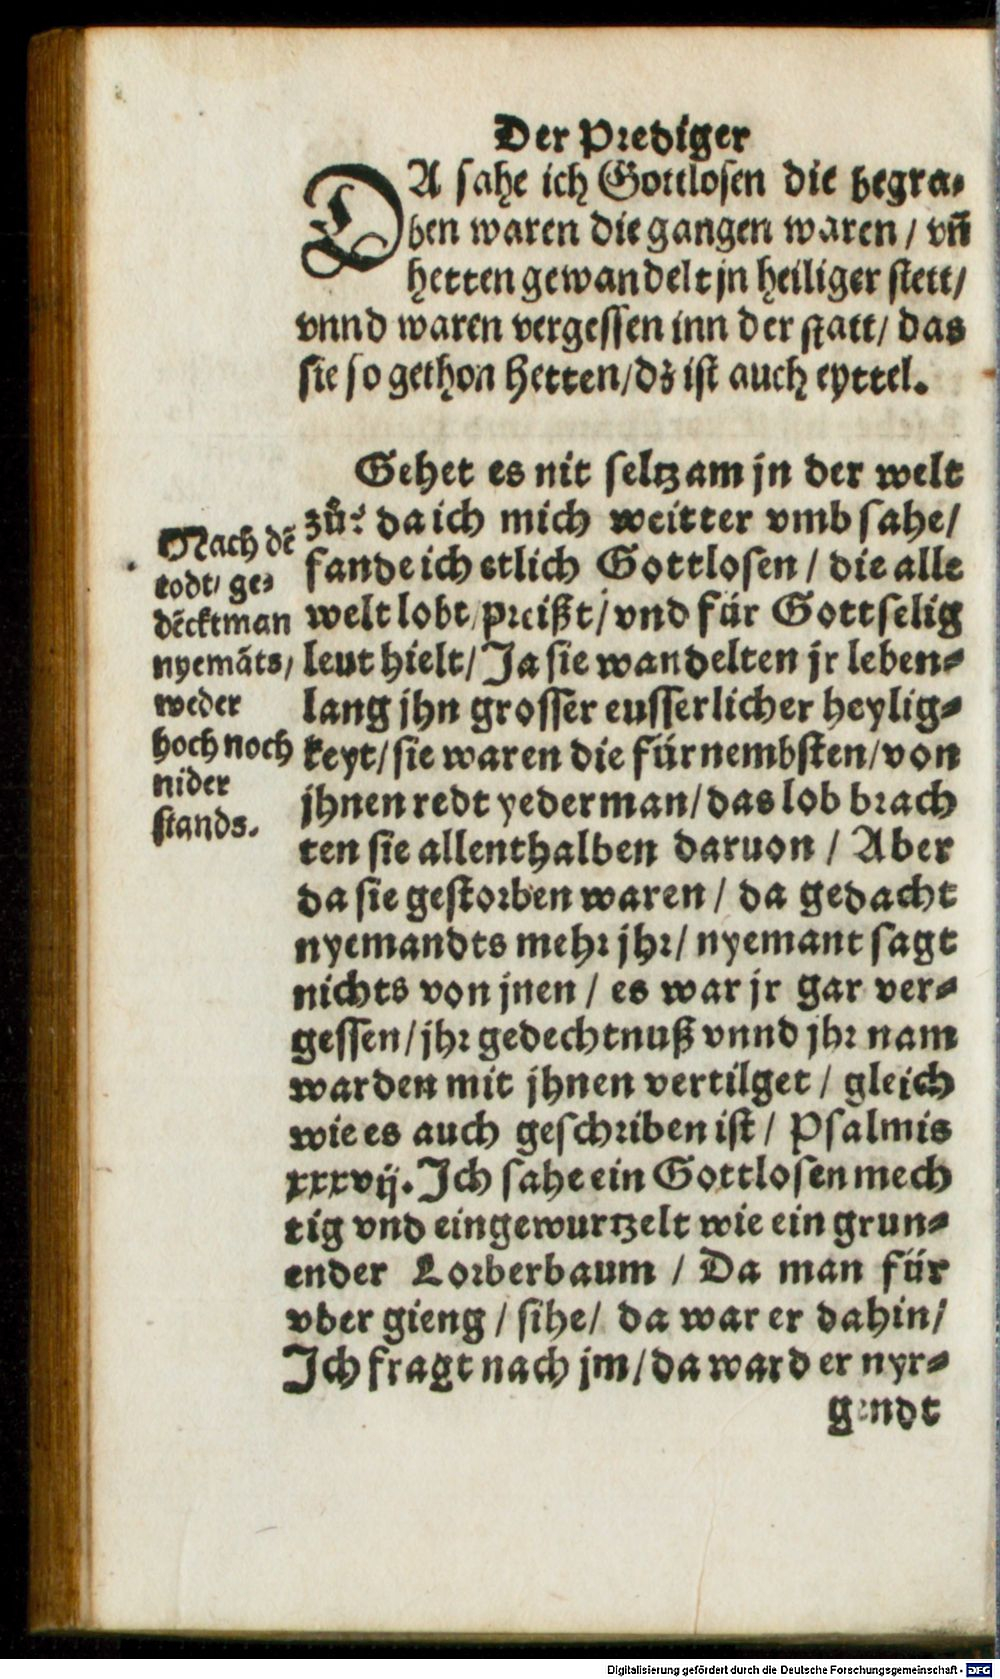 Der Prediger
DA sahe ich Gottlosen die begra⸗
ben waren die gangen waren / vñ
hetten gewandelt jn heiliger stett /
vnnd waren vergessen inn der statt / das
sie so gethon hetten / dz ist auch eyttel.
Gehet es nit seltzam jn der welt
zů? da ich mich weitter vmb sahe /
fande ich etlich Gottlosen / die alle
welt lobt / preißt / vnd für Gottselig
leut hielt / Ja sie wandelten jr leben⸗
lang jhn grosser eusserlicher heylig⸗
keyt / sie waren die fürnembsten / von
jhnen redt yederman / das lob brach
ten sie allenthalben daruon / Aber
da sie gestorben waren / da gedacht
nyemandts mehr jhr / nyemant sagt
nichts von jnen / es war jr gar ver⸗
gessen / jhr gedechtnuß vnnd jhr nam
warden mit jhnen vertilget / gleich
wie es auch geschriben ist / Psalmis
xxxvij. Ich sahe ein Gottlosen mech
tig vnd eingewurtzelt wie ein grun⸗
ender Lorberbaum / Da man für
vber gieng / sihe / da war er dahin /
Ich fragt nach jm / da ward er nyr⸗
gendt
Nach dẽ
todt / ge⸗
dẽckt man
nyemãts /
weder
hoch noch
nider
stands.
Digitalisierung gefördert durch die Deutsche Forschungsgemeinschaft - DFG